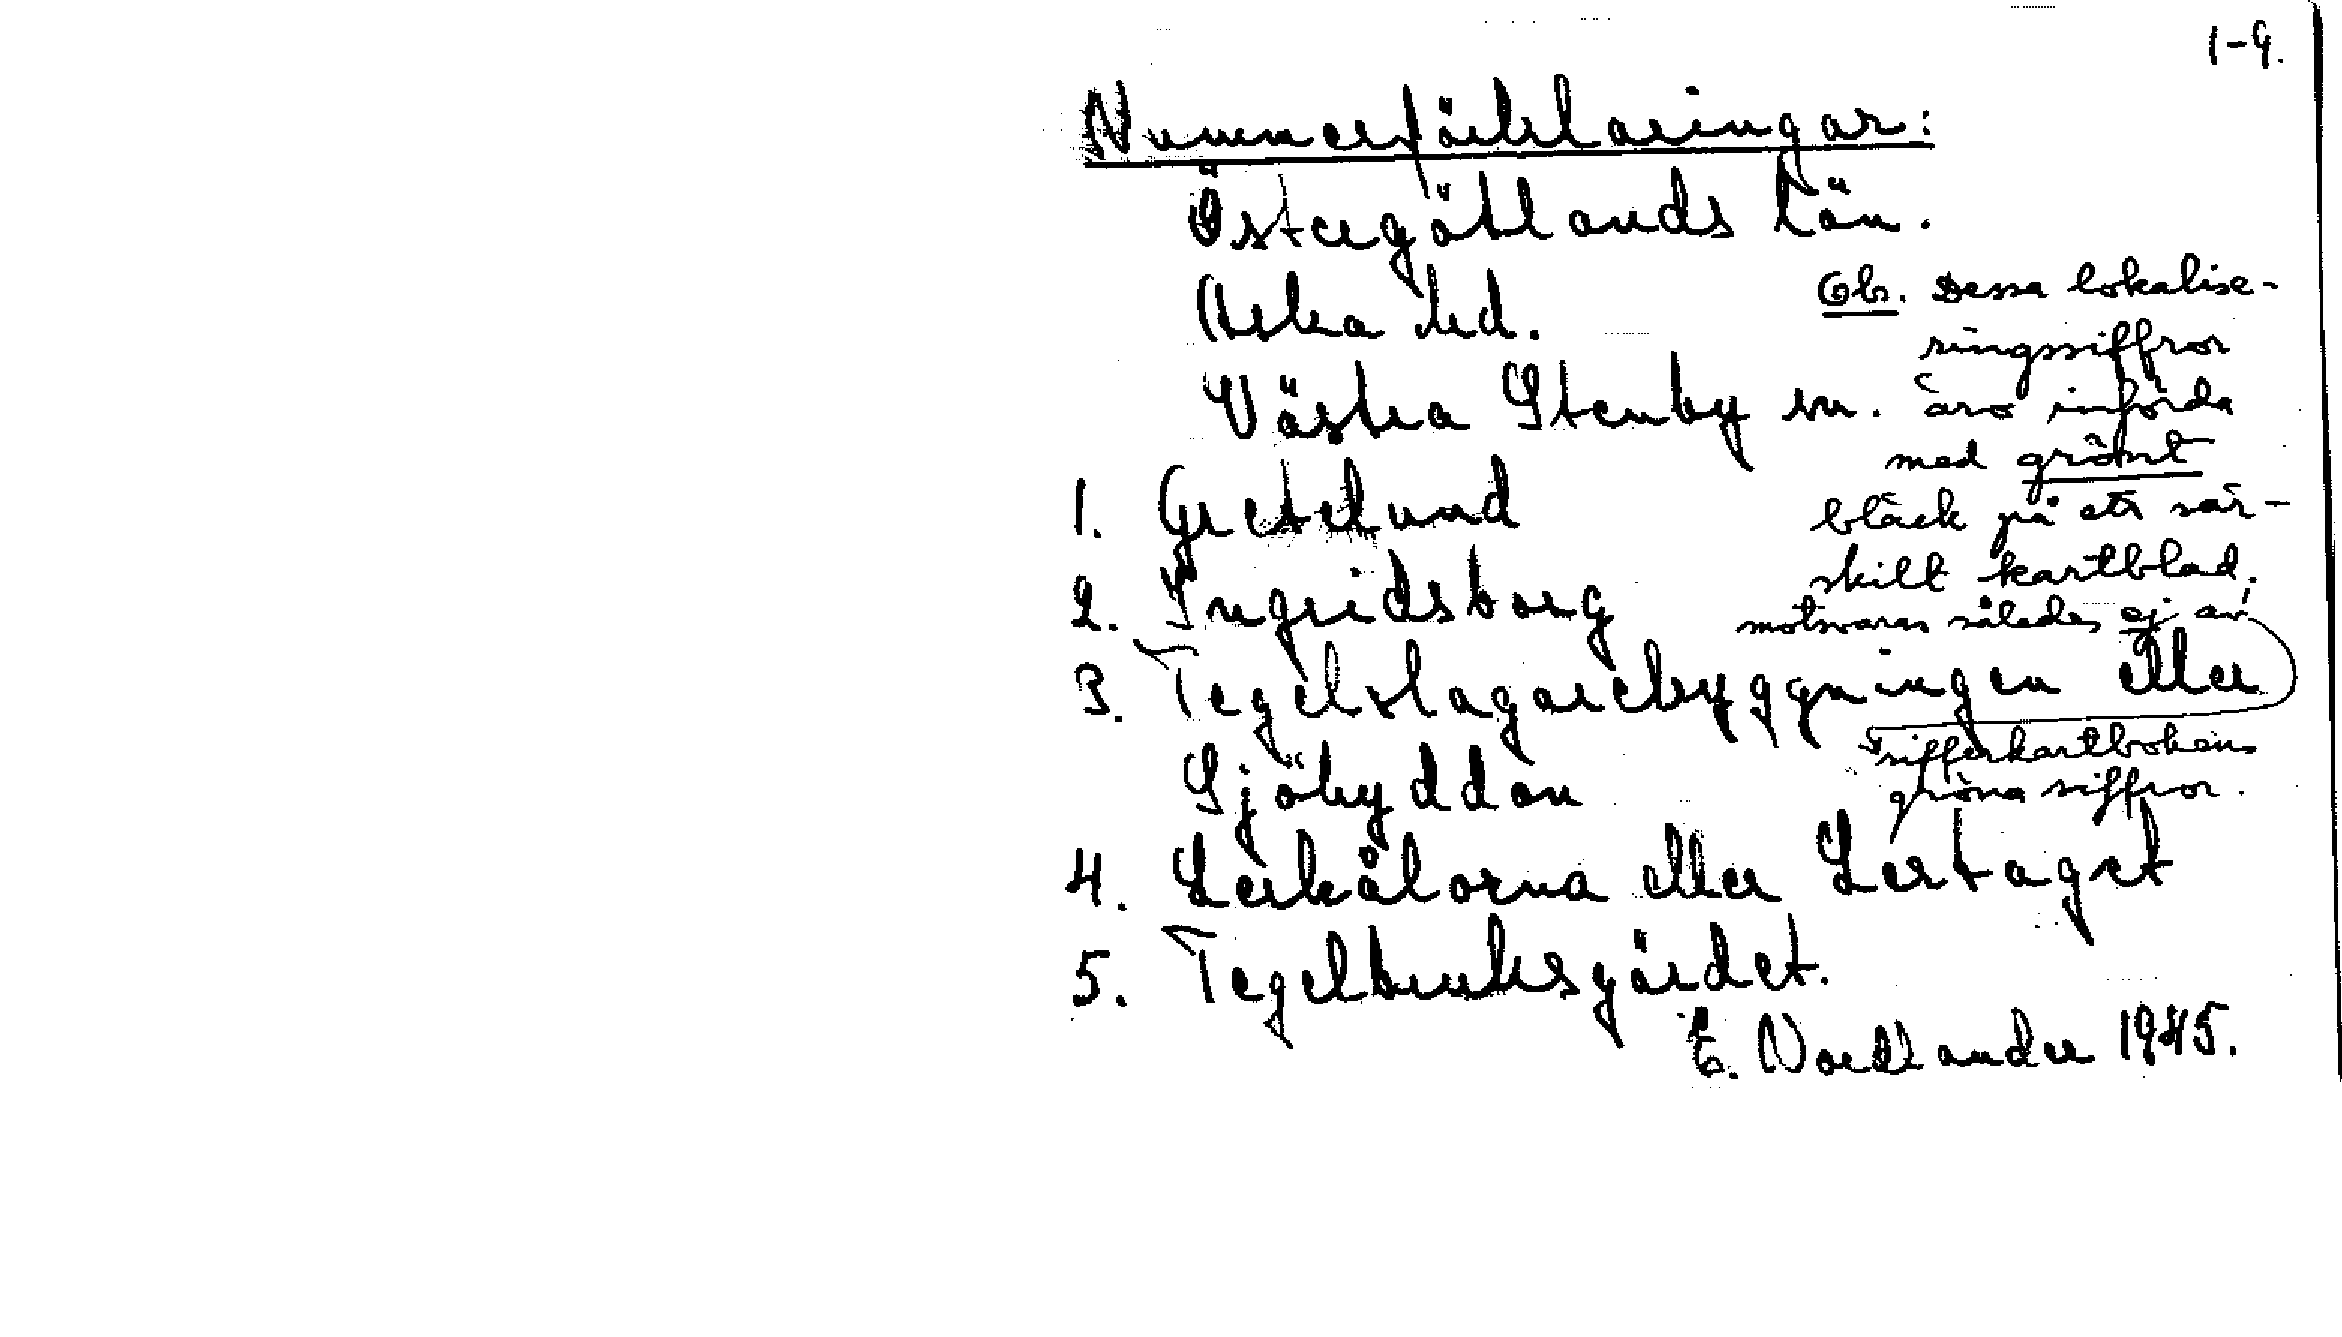 1-9.
Nummerförklaringar:
Östergötlands län.
Aska hd.
Västra Stenby sn.
1. Gretelund
2. Ingridsborg
3. Tegelslagarebyggningen eller
Sjöhyddan
4. Lerhålorna eller Lertaget
5. Tegelbruksgärdet.
E. Nordlander 1945.
Ob. Dessa lokalise-
ringssiffror
äro införda
med grönt
bläck på ett sär-
skilt kartblad;
motsvaras således ej av
sifferkartbokens
gröna siffror.